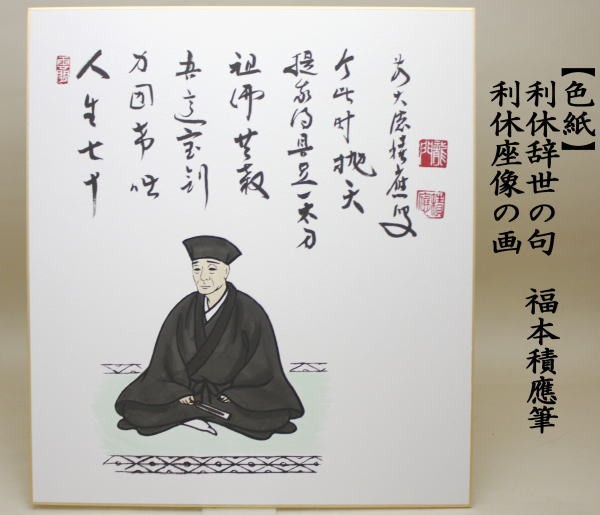 人生七十
力囲希咄
吾這宝剣
祖佛共殺
提我得具足一太刀
今此时抛天
前大徳積應叟
【色紙】
利休辞世の句　福本積應筆
利休座像の画